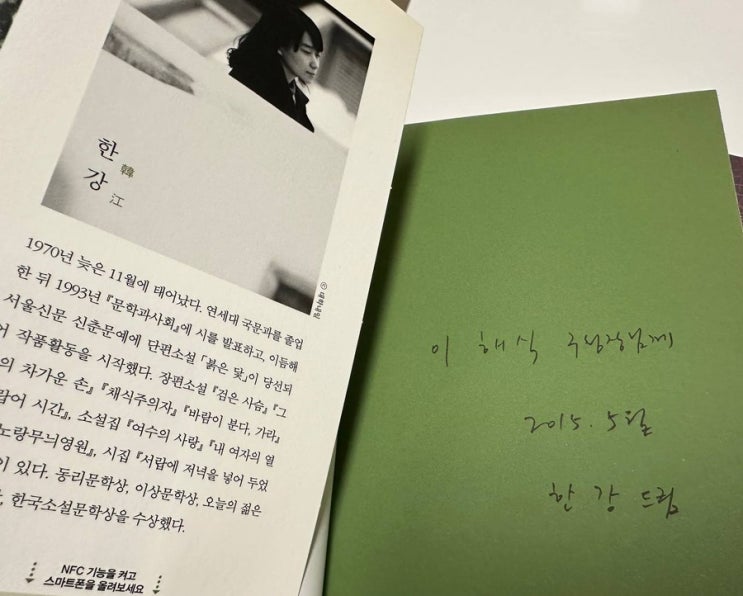 한 韓
강 江
ⓒ 백다흠
1970년 늦은 11월에 태어났다. 연세대 국문과를 졸업
한 뒤 1993년 『문학과사회』에 시를 발표하고, 이듬해
서울신문 신춘문예에 단편소설 「붉은 닻」이 당선되
어 작품활동을 시작했다. 장편소설 『검은 사슴』 『그
의 차가운 손』, 『채식주의자』 『바람이 분다, 가라』
랍어 시간』, 소설집 『여수의 사랑』 『내 여자의 열
노랑무늬영원』, 시집 『서랍에 저녁을 넣어 두었
이 있다. 동리문학상, 이상문학상, 오늘의 젊은
한국소설문학상을 수상했다.
NFC 기능을 켜고
스마트폰을 올려보세요
이 해 식 구청장님께
2015. 5월
한 강 드림